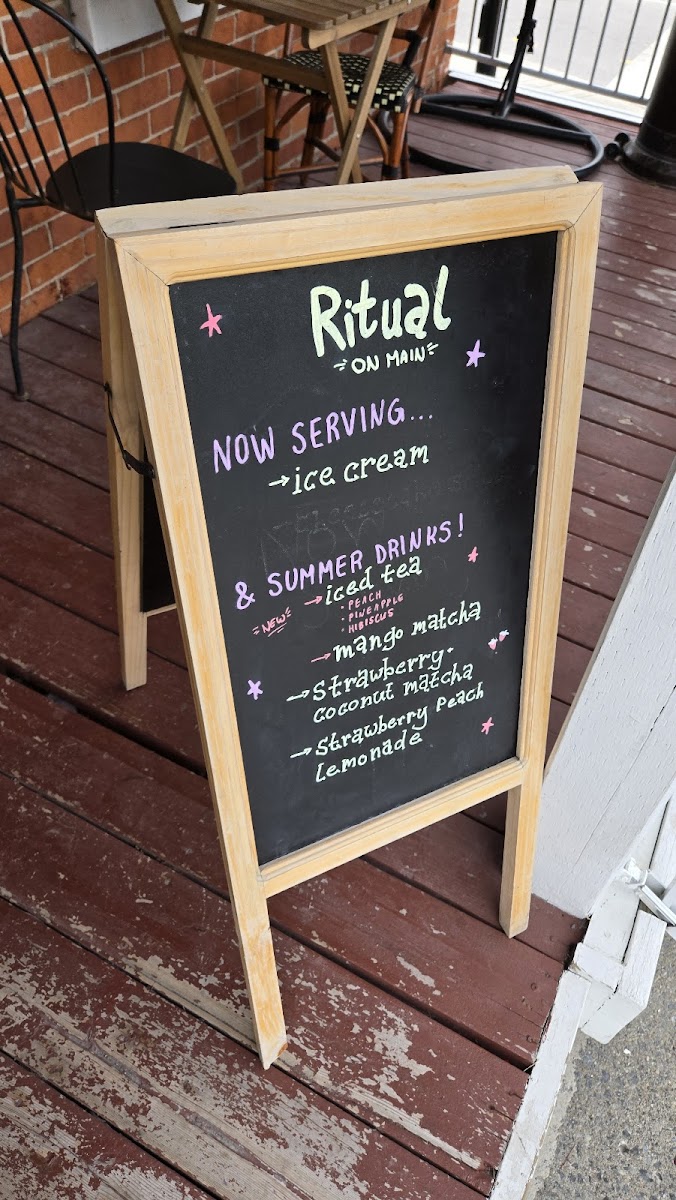 Ritual
ON MAIN
NOW SERVING...
→ice cream
& SUMMER DRINKS!
NEW →iced tea
• PEACH
• PINEAPPLE
• HIBISCUS
→mango matcha
→Strawberry·
coconut matcha
→Strawberry Peach
Lemonade